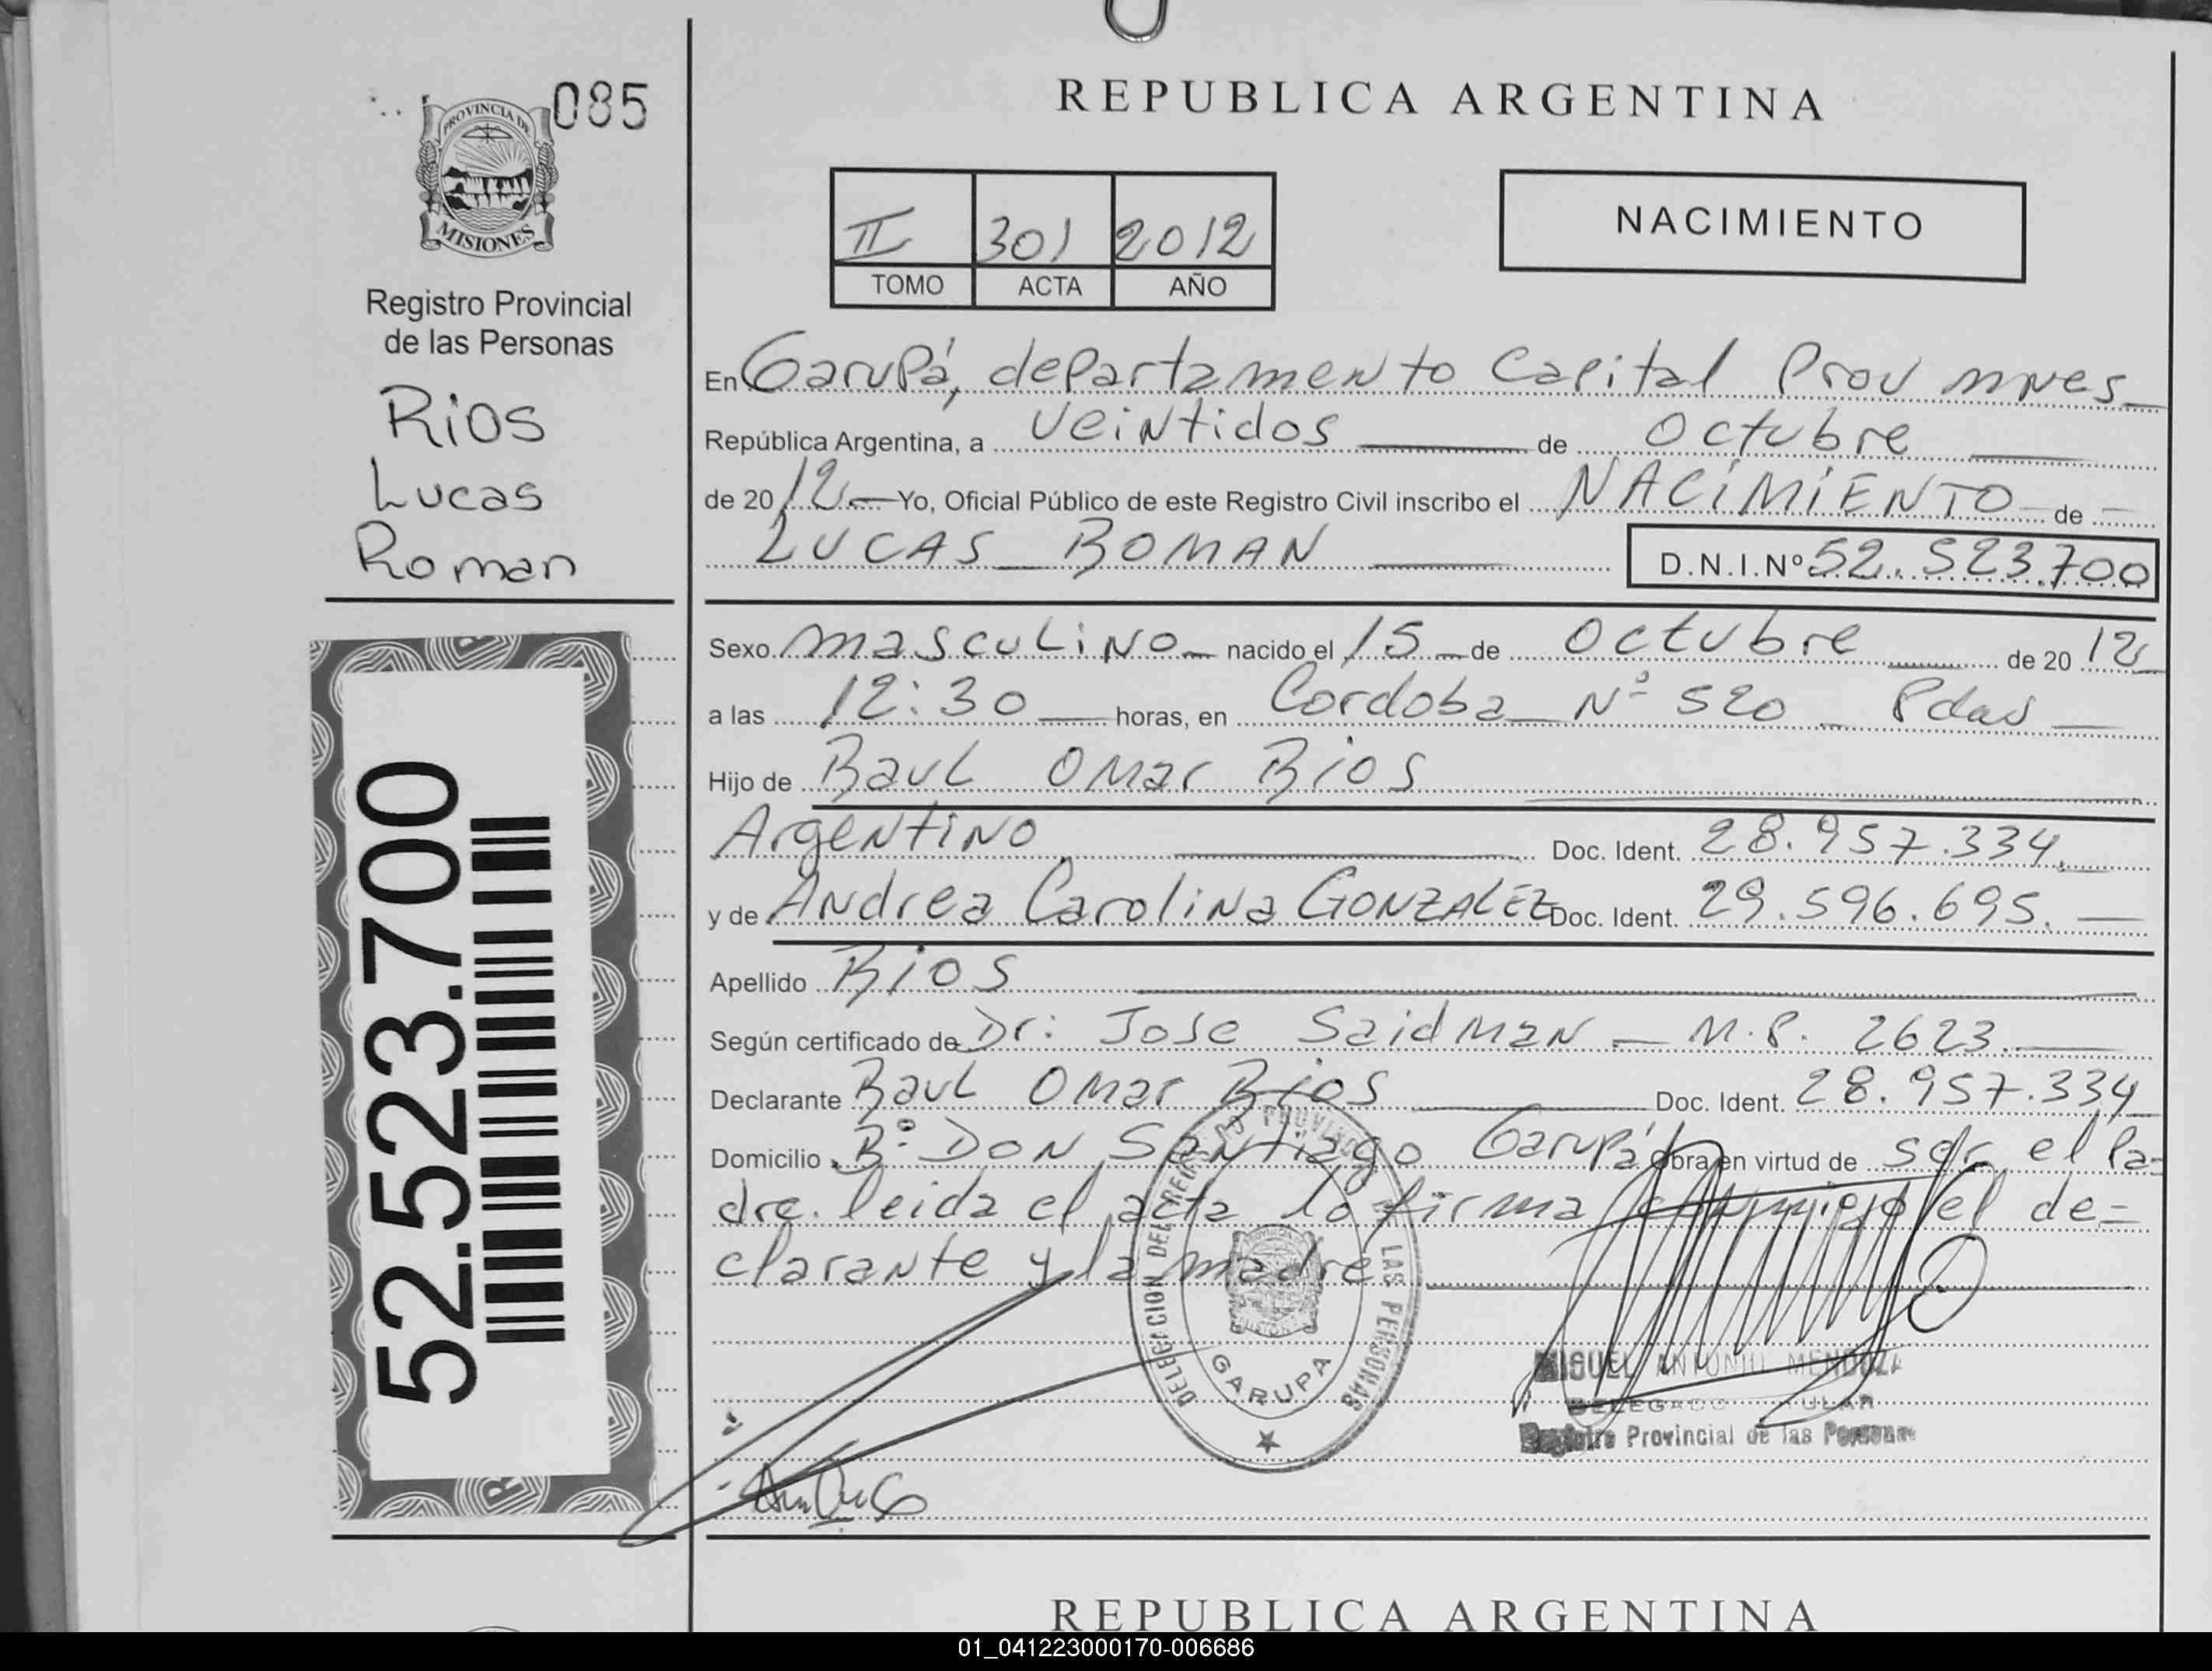 085
PROVINCIA DE
MISIONES
Registro Provincial
de las Personas
Rios
Lucas
Roman
52.523.700
REPUBLICA ARGENTINA
II 301 2012
TOMO ACTA AÑO
NACIMIENTO
En Garupá, departamento Capital Prov mnes
República Argentina, a veintidos de octubre
de 2012 Yo, Oficial Público de este Registro Civil inscribo el NACIMIENTO de
LUCAS ROMAN D.N.I.Nº 52.523.700
Sexo masculino nacido el 15 de octubre de 2012
a las 12:30 horas, en Cordoba Nº 520 Pdas
Hijo de Raul Omar Rios
Argentino Doc. Ident. 28.957.334
y de Andrea Carolina GONZALEZ Doc. Ident. 29.596.695.
Apellido Rios
Según certificado de Dr: Jose Saidman M.P. 2623
Declarante Raul Omar Rios Doc. Ident. 28.957.334
Domicilio Bº Don Santiago Garupá obra en virtud de ser el Pa-
dre. leida el acta la firma conmigo el de=
clarante y la madre
DELEGACION DEL REGISTRO PROVINCIAL DE LAS PERSONAS
GARUPA
MIGUEL ANTONIO MENDOZA
DELEGADO TITULAR
Registro Provincial de las Personas
REPUBLICA ARGENTINA
01_041223000170-006686